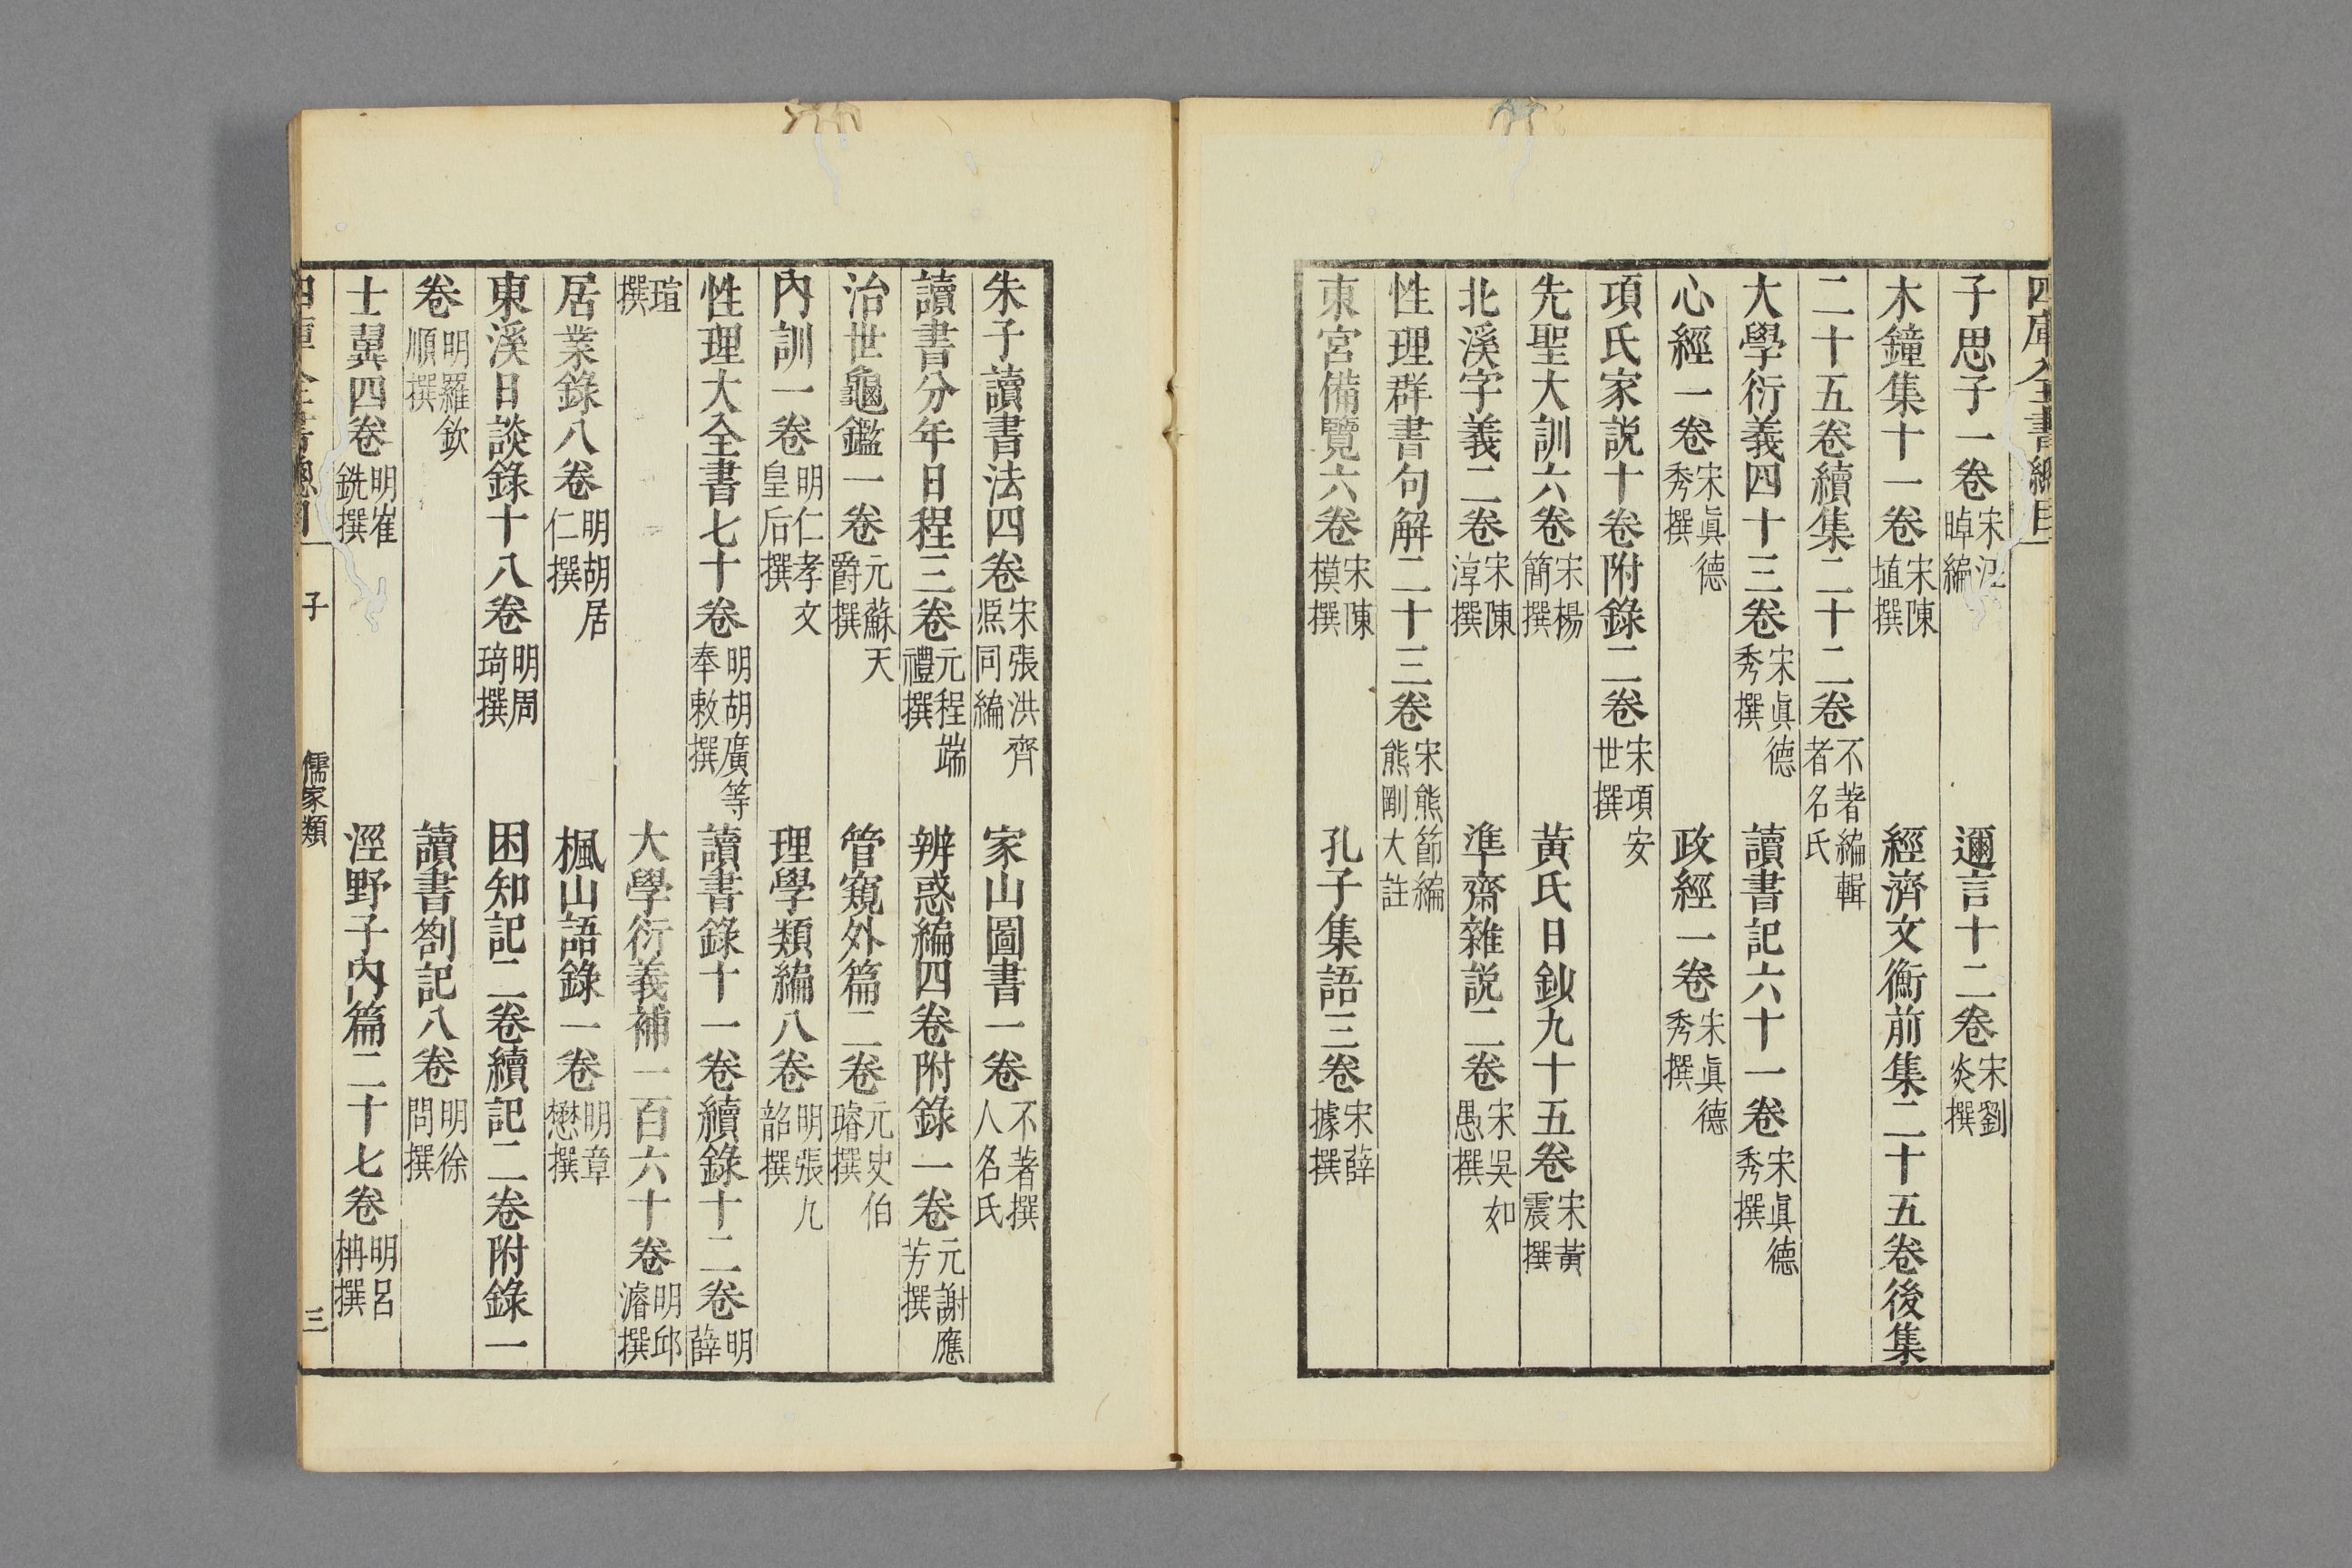 四庫全書總目
子思子一卷宋汪晫編 邇言十二卷宋劉炎撰
木鐘集十一卷宋陳埴撰 經濟文衡前集二十五卷後集
二十五卷續集二十二卷不著編輯者名氏
大學衍義四十三卷宋眞德秀撰 讀書記六十一卷宋眞德秀撰
心經一卷宋眞德秀撰 政經一卷宋眞德秀撰
項氏家説十卷附錄二卷宋項安世撰
先聖大訓六卷宋楊簡撰 黃氏日鈔九十五卷宋黃震撰
北溪字義二卷宋陳淳撰 準齋雜説二卷宋吳如愚撰
性理群書句解二十三卷宋熊節編熊剛大註
東宮備覽六卷宋陳模撰 孔子集語三卷宋薛據撰
朱子讀書法四卷宋張洪齊㷧同編 家山圖書一卷不著撰人名氏
讀書分年日程三卷元程端禮撰 辨惑編四卷附錄一卷元謝應芳撰
治世龜鑑一卷元蘇天爵撰 管窺外篇二卷元史伯璿撰
內訓一卷明仁孝文皇后撰 理學類編八卷明張九韶撰
性理大全書七十卷明胡廣等奉敕撰 讀書錄十一卷續錄十二卷明薛
瑄撰 大學衍義補一百六十卷明邱濬撰
居業錄八卷明胡居仁撰 楓山語錄一卷明章懋撰
東溪日談錄十八卷明周琦撰 困知記二卷續記二卷附錄一
卷明羅欽順撰 讀書劄記八卷明徐問撰
士翼四卷明崔銑撰 涇野子內篇二十七卷明呂柟撰
四庫全書總目 子 儒家類 三